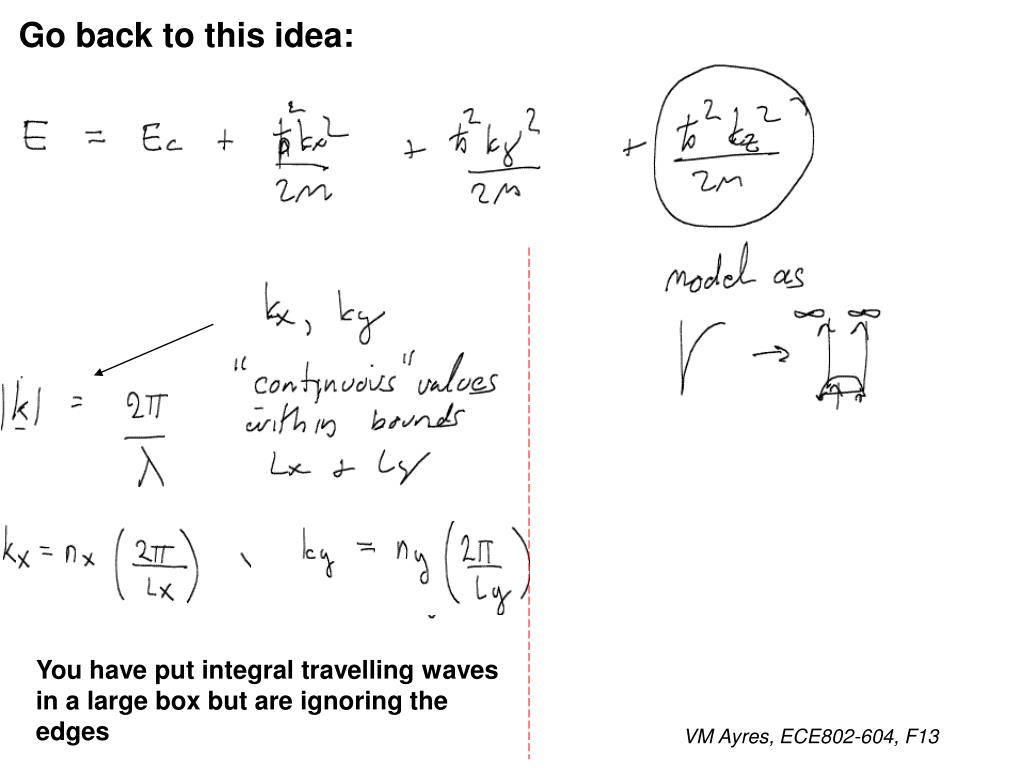 Go back to this idea:
E = Ec + ħ²kx²/2m + ħ²ky²/2m + ħ²kz²/2m
model as
V → ∞ ∞
kx, ky
|k| = 2π/λ
"continuous" values
within bounds
Lx + Ly
kx = nx (2π/Lx) , ky = ny (2π/Ly)
You have put integral travelling waves
in a large box but are ignoring the
edges
VM Ayres, ECE802-604, F13